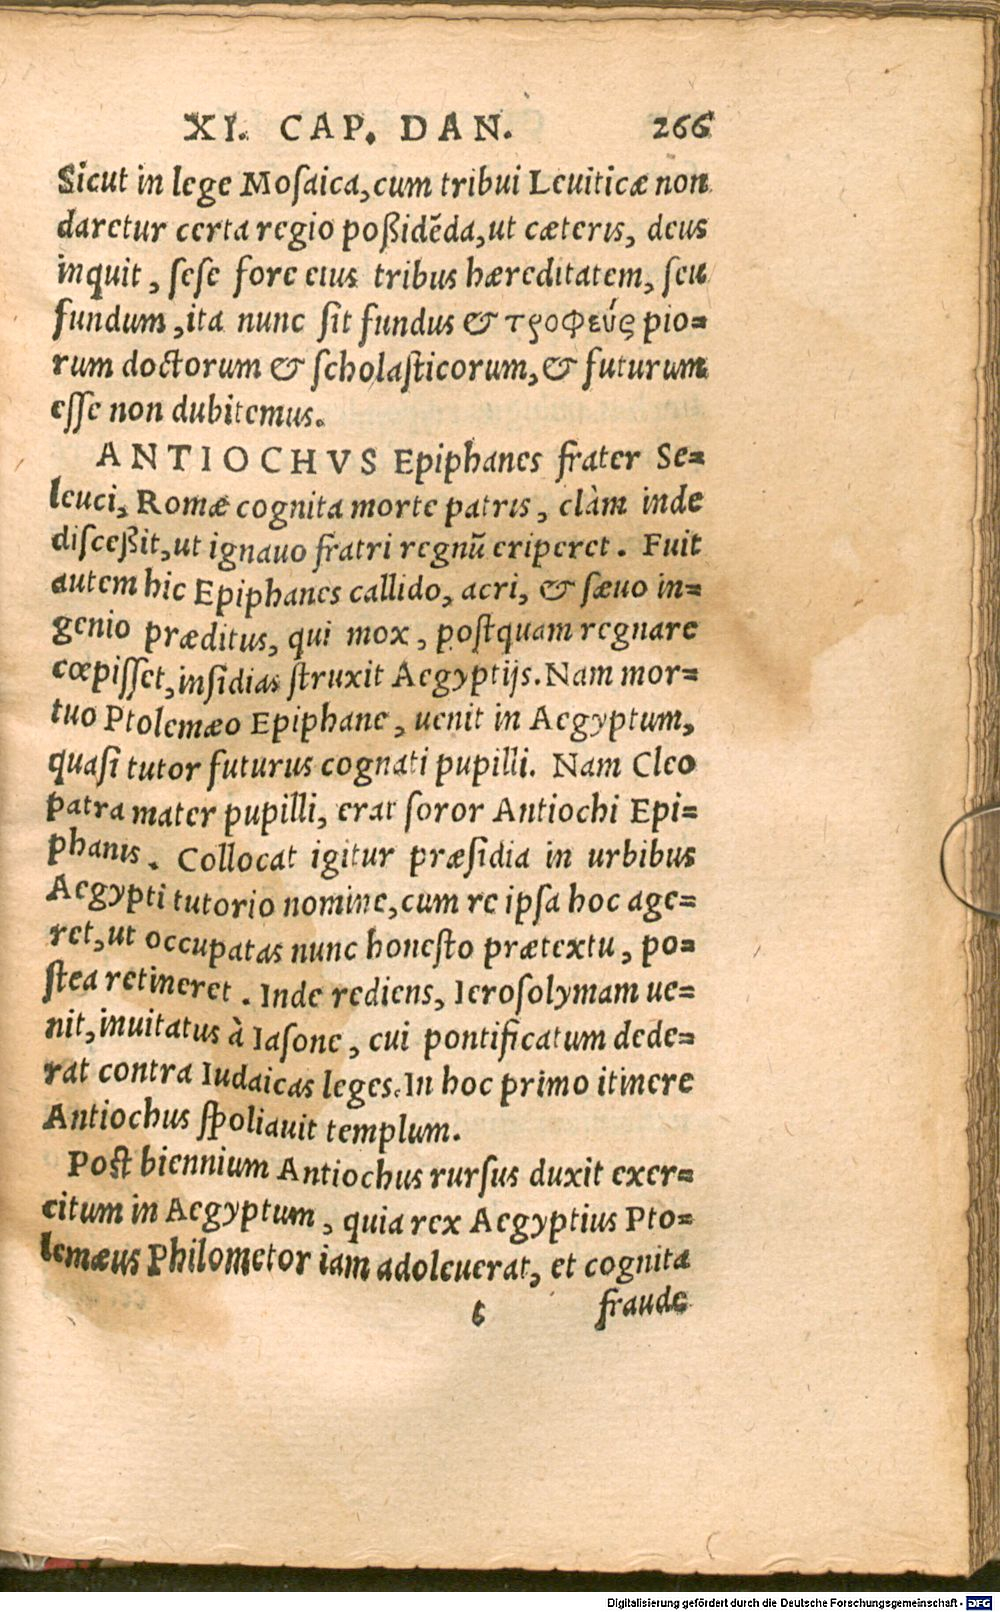 XI. CAP. DAN. 266
Sicut in lege Mosaica, cum tribui Leuiticæ non
daretur certa regio poßidẽda, ut cæteris, deus
inquit, sese fore eius tribus hæreditatem, seu
fundum, ita nunc sit fundus & τροφεύς pio=
rum doctorum & scholasticorum, & futurum
esse non dubitemus.
ANTIOCHVS Epiphanes frater Se=
leuci, Romæ cognita morte patris, clàm inde
disceßit, ut ignauo fratri regnũ eriperet. Fuit
autem hic Epiphanes callido, acri, & sæuo in=
genio præditus, qui mox, postquam regnare
cœpisset, insidias struxit Aegyptijs. Nam mor=
tuo Ptolemæo Epiphane, uenit in Aegyptum,
quasi tutor futurus cognati pupilli. Nam Cleo
patra mater pupilli, erat soror Antiochi Epi=
phanis. Collocat igitur præsidia in urbibus
Aegypti tutorio nomine, cum re ipsa hoc age=
ret, ut occupatas nunc honesto prætextu, po=
stea retineret. Inde rediens, Ierosolymam ue=
nit, inuitatus à Iasone, cui pontificatum dede=
rat contra Iudaicas leges. In hoc primo itinere
Antiochus spoliauit templum.
Post biennium Antiochus rursus duxit exer=
citum in Aegyptum, quia rex Aegyptius Pto=
lemæus Philometor iam adoleuerat, et cognita
6 fraude
Digitalisierung gefördert durch die Deutsche Forschungsgemeinschaft - DFG